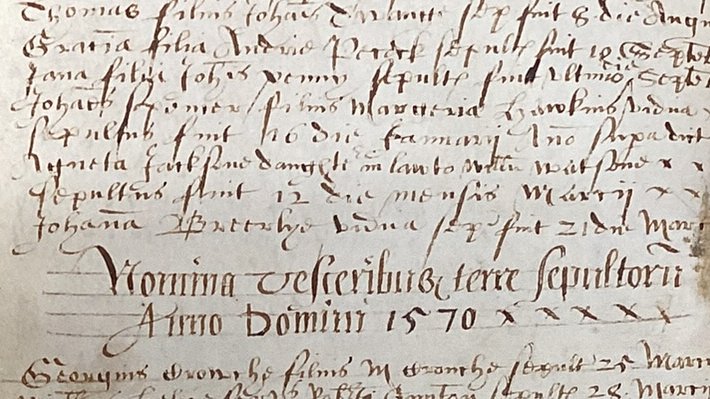 Thomas filius Johañs Twaitte sep fuit 8 die Augu
Gratia filia Andrie Pececk sepultꝭ fuit 19 Septb
Jana filia Johis penny sepultꝭ fuit ultimo die Septb
Johañs filius Margeria Hawkins vidua
sepultus fuit 16 die Januarij Anõ supa dict
Agneta Jacksone daughter in law to willm watsone x x
sepultus fuit 12 die mensis Marcij x x
Johana Breerlye vidua sepꝭ fuit 21 die Marc
Nomina terre sepultorũ
Anno Domini 1570 x x x x x
Georgius Crowche filius M Crouche sepult 25 Marcij
sepultꝭ 28 Marcij